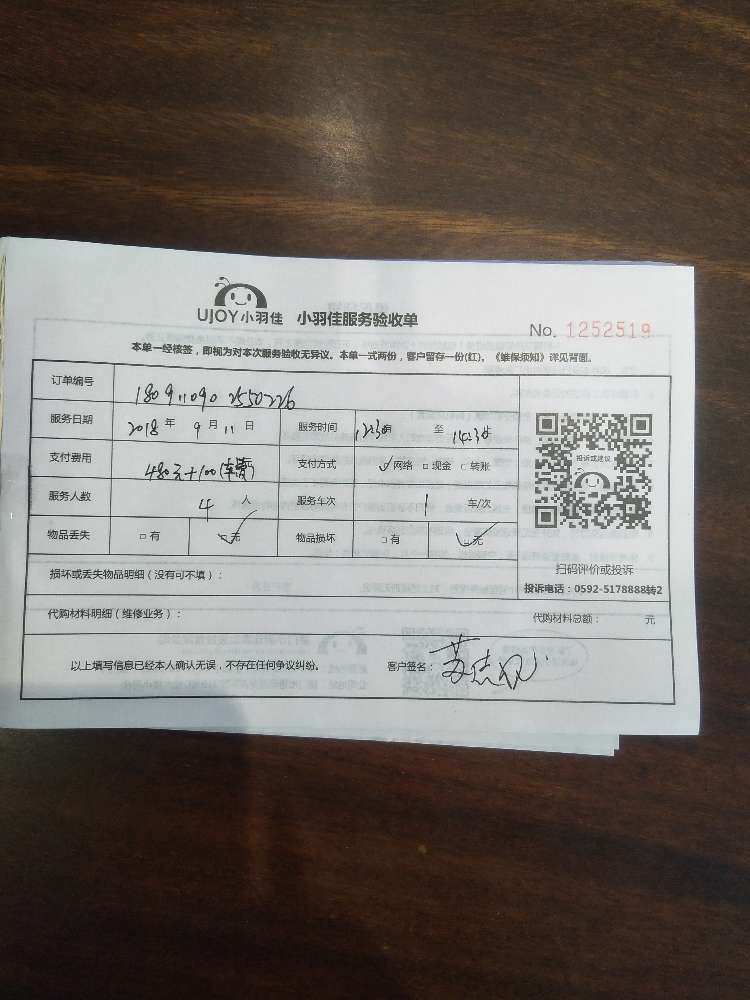 UJOY小羽佳 小羽佳服务验收单
No. 1252519
本单一经核签，即视为对本次服务验收无异议。本单一式两份，客户留存一份(红)，《维保须知》详见背面。
订单编号 180911090 2550226
服务日期 2018年 9月 11日 服务时间 12:30 至 14:30
支付费用 480元+100(车费) 支付方式 网络 □现金 □转账
服务人数 4 人 服务车次 1 车/次
物品丢失 □有 □无 物品损坏 □有 □无
投诉或建议
扫码评价或投诉
投诉电话：0592-5178888转2
损坏或丢失物品明细（没有可不填）：
代购材料明细（维修业务）： 代购材料总额： 元
以上填写信息已经本人确认无误，不存在任何争议纠纷。 客户签名：